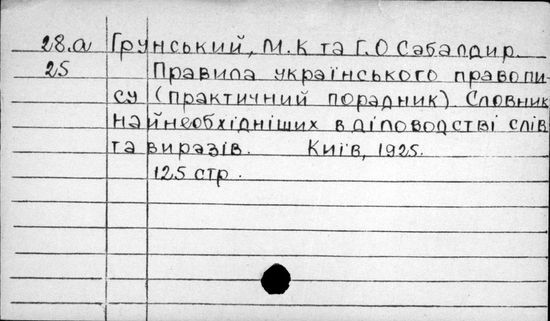 28.а Грунський, М.К та Г.О Сабалдир.
25 Правила українського правопи-
су (практичний порадник) Словник
найнеобхідніших в діловодстві слів
та виразів. Київ, 1925.
125 стр.